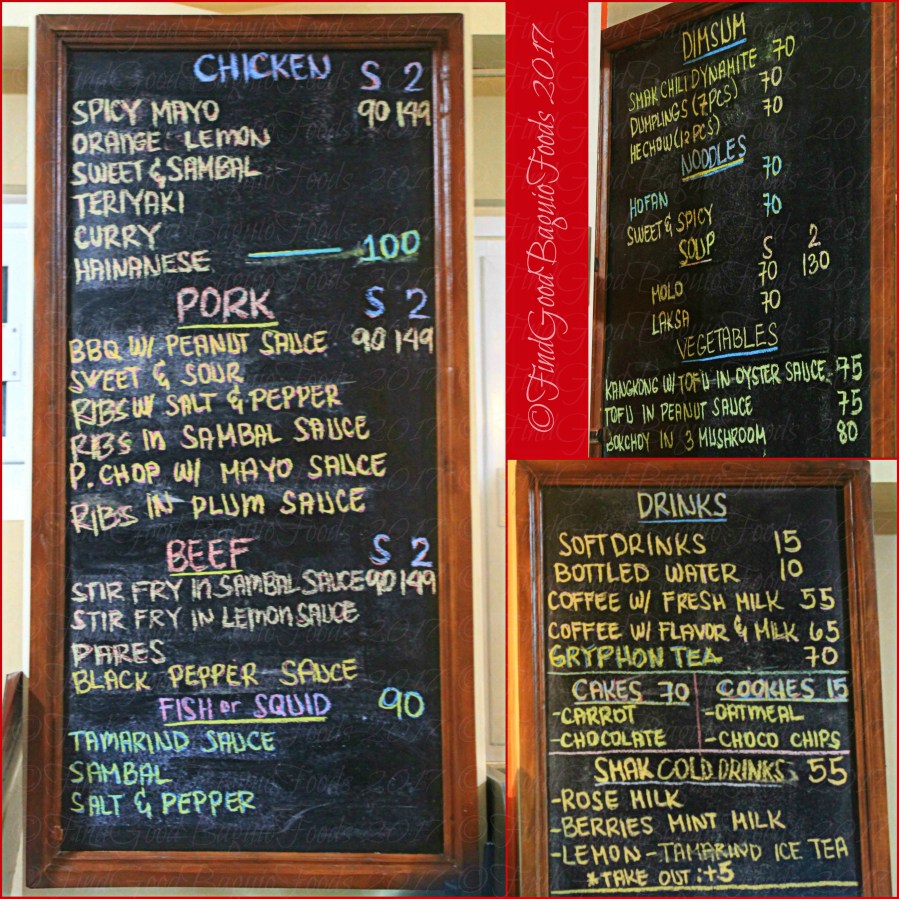 CHICKEN S 2
SPICY MAYO 90 149
ORANGE LEMON
SWEET & SAMBAL
TERIYAKI
CURRY
HAINANESE 100
PORK S 2
BBQ W/ PEANUT SAUCE 90 149
SWEET & SOUR
RIBS W/ SALT & PEPPER
RIBS in SAMBAL SAUCE
P. CHOP W/ MAYO SAUCE
RIBS IN PLUM SAUCE
BEEF S 2
STIR FRY IN SAMBAL SAUCE 90 149
STIR FRY IN LEMON SAUCE
PARES
BLACK PEPPER SAUCE
FISH or SQUID 90
TAMARIND SAUCE
SAMBAL
SALT & PEPPER
©FindGoodBaguioFoods 2017
DIMSUM
SMAK CHILI DYNAMITE 70
DUMPLINGS (7PCS) 70
HECHOW (12PCS) 70
NOODLES
HOFAN 70
SWEET & SPICY 70
SOUP S 2
MOLO 70 130
LAKSA 70
VEGETABLES
KANGKONG W/ TOFU IN OYSTER SAUCE 75
TOFU IN PEANUT SAUCE 75
BOKCHOY IN 3 MUSHROOM 80
DRINKS
SOFTDRINKS 15
BOTTLED WATER 10
COFFEE W/ FRESH MILK 55
COFFEE W/ FLAVOR & MILK 65
GRYPHON TEA 70
CAKES 70
-CARROT
-CHOCOLATE
COOKIES 15
-OATMEAL
-CHOCO CHIPS
SMAK COLD DRINKS 55
-ROSE MILK
-BERRIES MINT MILK
-LEMON-TAMARIND ICE TEA
*TAKE OUT: +5